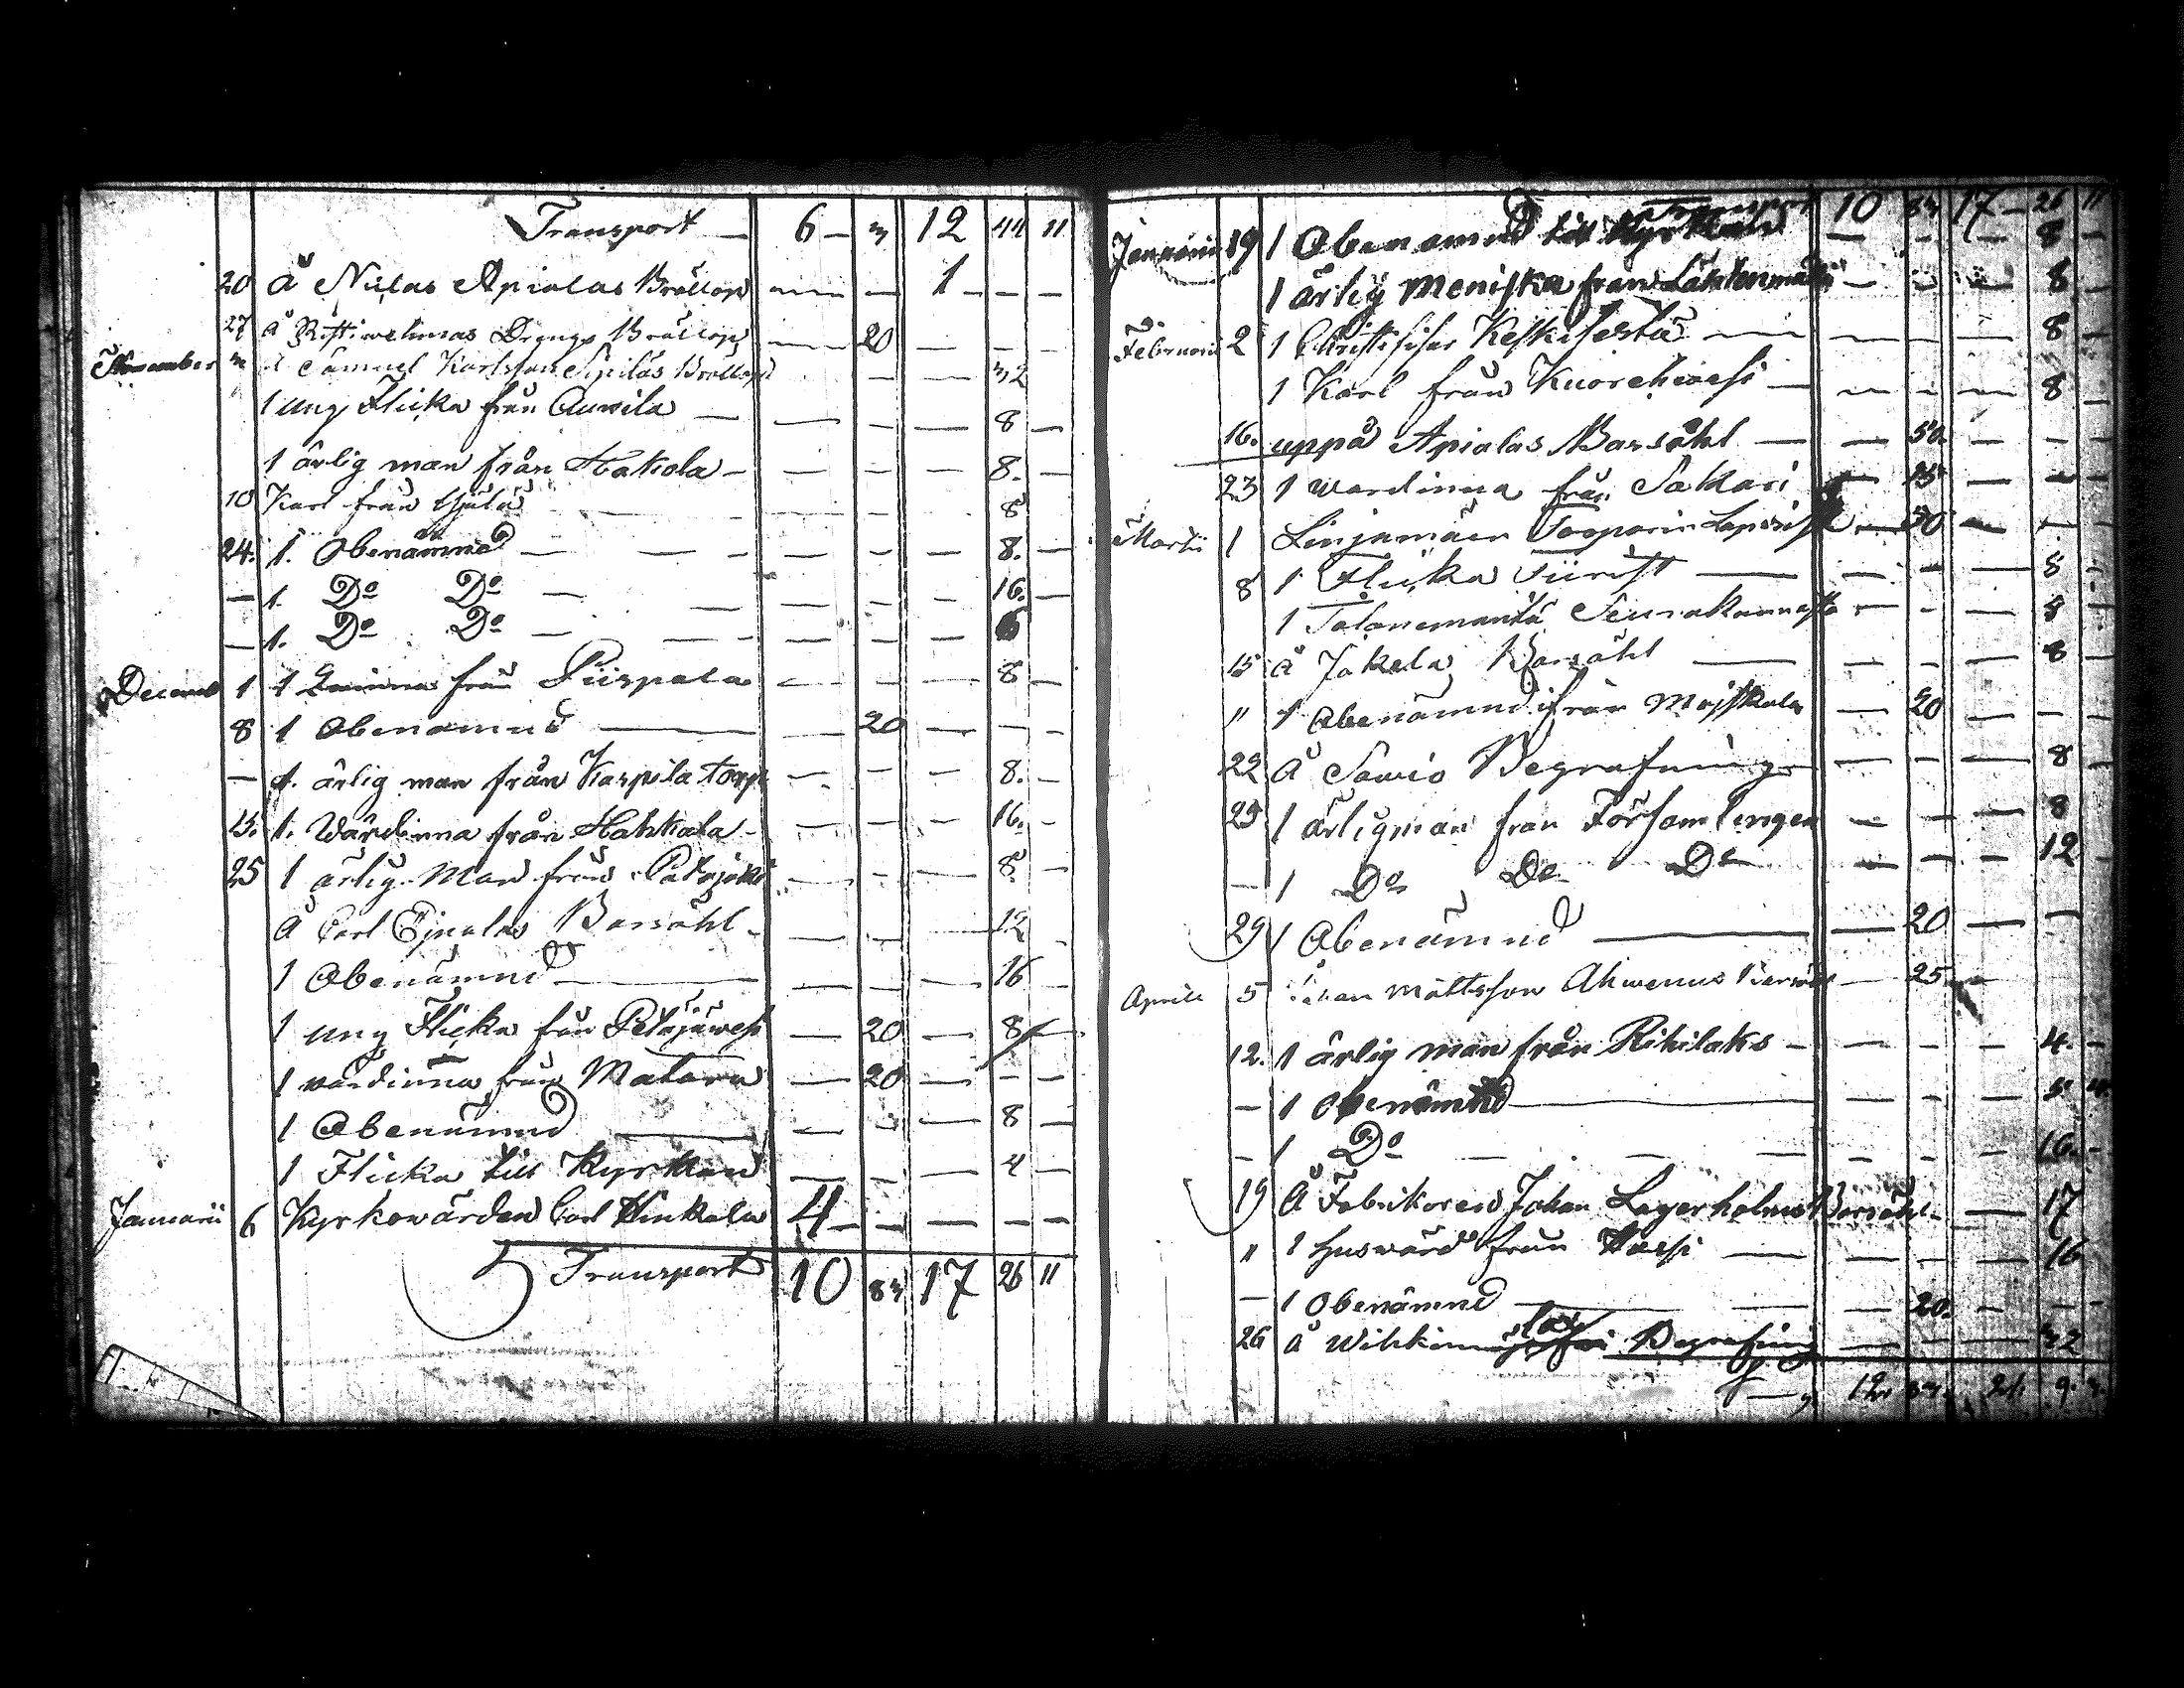 Transport — 6 — 3 12 44 11
20 Å Niclas Apialas Bröllop — — 1 — — —
27 Å Ristiwehmas Drengs Bröllop — 20 — — —
November 3 å Samuel Karlsson Sipiläs Bröllop — — 32
1 ung Flicka från Auvila — — — — 8 —
1 ärlig man från Hakola — — — — 8. —
10 Karl från 8
24. 1. Obenämnd — — — — — 8. —
— 1. Do Do — — — — — 16. —
— 1. Do Do — — — — —
December 1 1 Qwinna från Piispala — — — 8 —
8 1 Obenämnd — — 20 — — —
— 1. ärlig man från Karpila torp — — — 8. —
15. 1. Wärdinna från Hahkala — — — — 16. —
25 1 ärlig Man från Patajoki — — — 8. —
Å Carl Ojnalas Barsöhl — — — 12 —
1 Obenämnd — — — — 16 —
1 ung Flicka från Petäjäwesi — 20 — 8 —
1 wärdinna från Matara — 20 — — —
1 Obenämnd — — — — 8 —
1 Flicka till Kyrkan — — — 4 —
Januarii 6 Kyrkowärden Carl Hinkala 4 — — — — —
Transport 10 83 17 26 11
Transport 10 83 17 — 26 11
Januarii 19 1 Obenämnd till Kyrkan — — — 8 —
1 ärlig Meniska från — — — 8 —
Februarii 2 1 Keskisestä — — — — 8
1 Karl från Kuorehwesi — — — — 8 —
16. uppå Apialas Barsöhl — — 50 — — —
23 1 wärdinna från Sakari — 25 — — —
Martii 1 Linjamäen — 50 — — —
8 1 Flicka Tiirist — — — — 8 —
1 Talonemäntä Seurakunnasta — — — 8 —
15 å Jokela Barsöhl — — — — 8 —
" 1 Obenämnd från Majskola — 20 — — —
22 Å Sawio Begrafning — — — 8 —
25 1 ärligman från Församlingen — — — 8 —
— 1 Do Do Do — — — 12 —
29 1 Obenämnd — — 20 — —
Aprill 5 Johan Mattsson Ahwenus Barsöhl — 25 —
12. 1 ärlig man från Rihilaks — — — — 4. —
— 1 Obenämnd — — — — 5 4.
— 1 Do — — — — — — 16. —
19 Å Fabrikoren Johan Lagerholms Barsöhl — — 17
" 1 Huswärd från Wäsi — — — — 16
— 1 Obenämnd — — — 20. — — —
26 Å Wihkin Begrafning — — — 32
12. 33. 21. 9. 3.